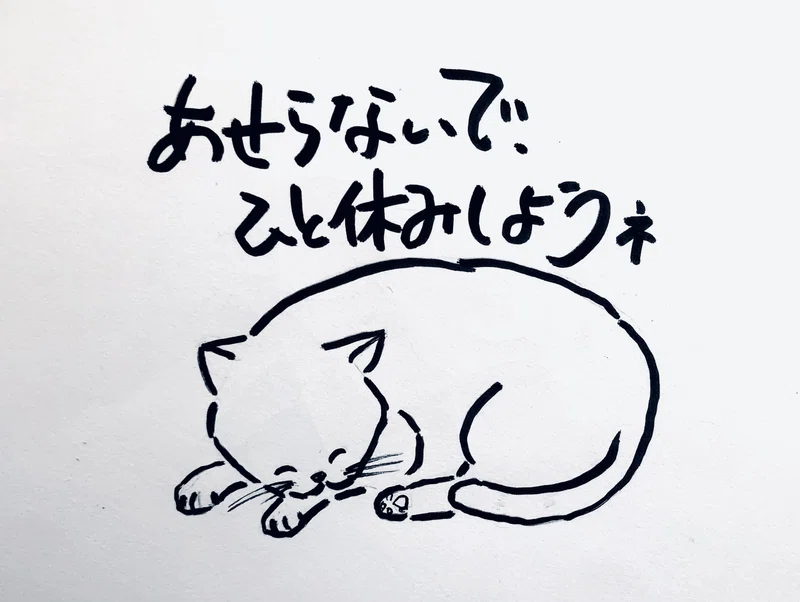 あせらないで.
ひと休みしようネ